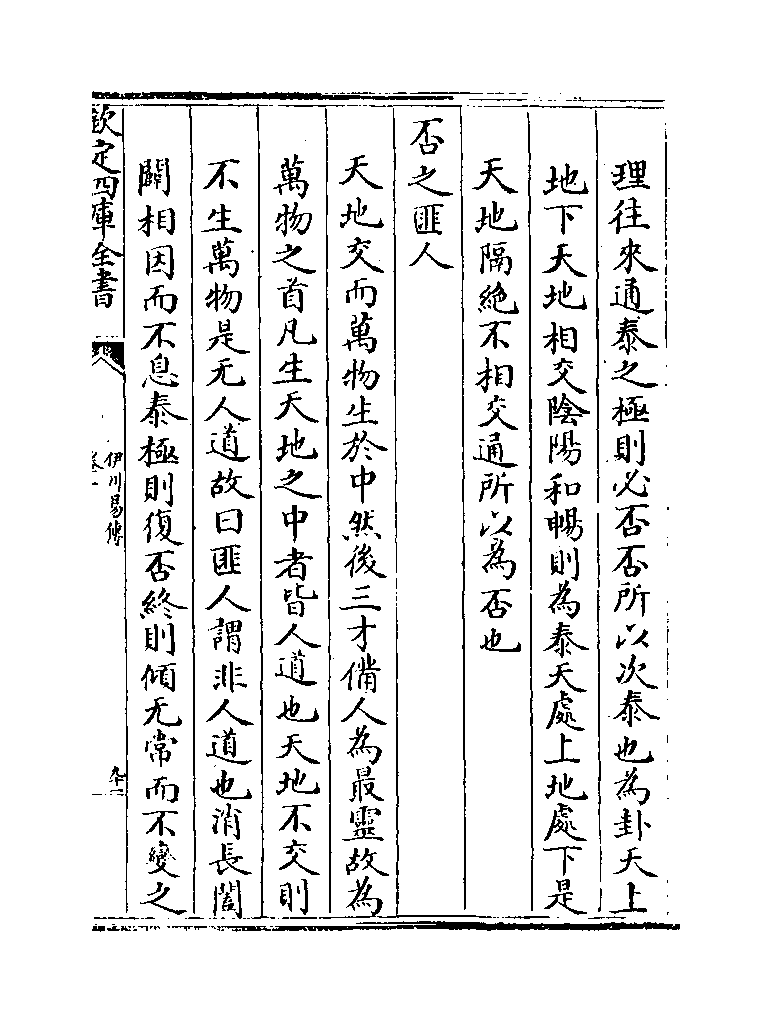 理往來通泰之極則必否否所以次泰也為卦天上
地下天地相交陰陽和暢則為泰天處上地處下是
天地隔絶不相交通所以為否也
否之匪人
天地交而萬物生於中然後三才備人為最靈故為
萬物之首凡生天地之中者皆人道也天地不交則
不生萬物是无人道故曰匪人謂非人道也消長闔
闢相因而不息泰極則復否終則傾无常而不變之
欽定四庫全書
伊川易傳